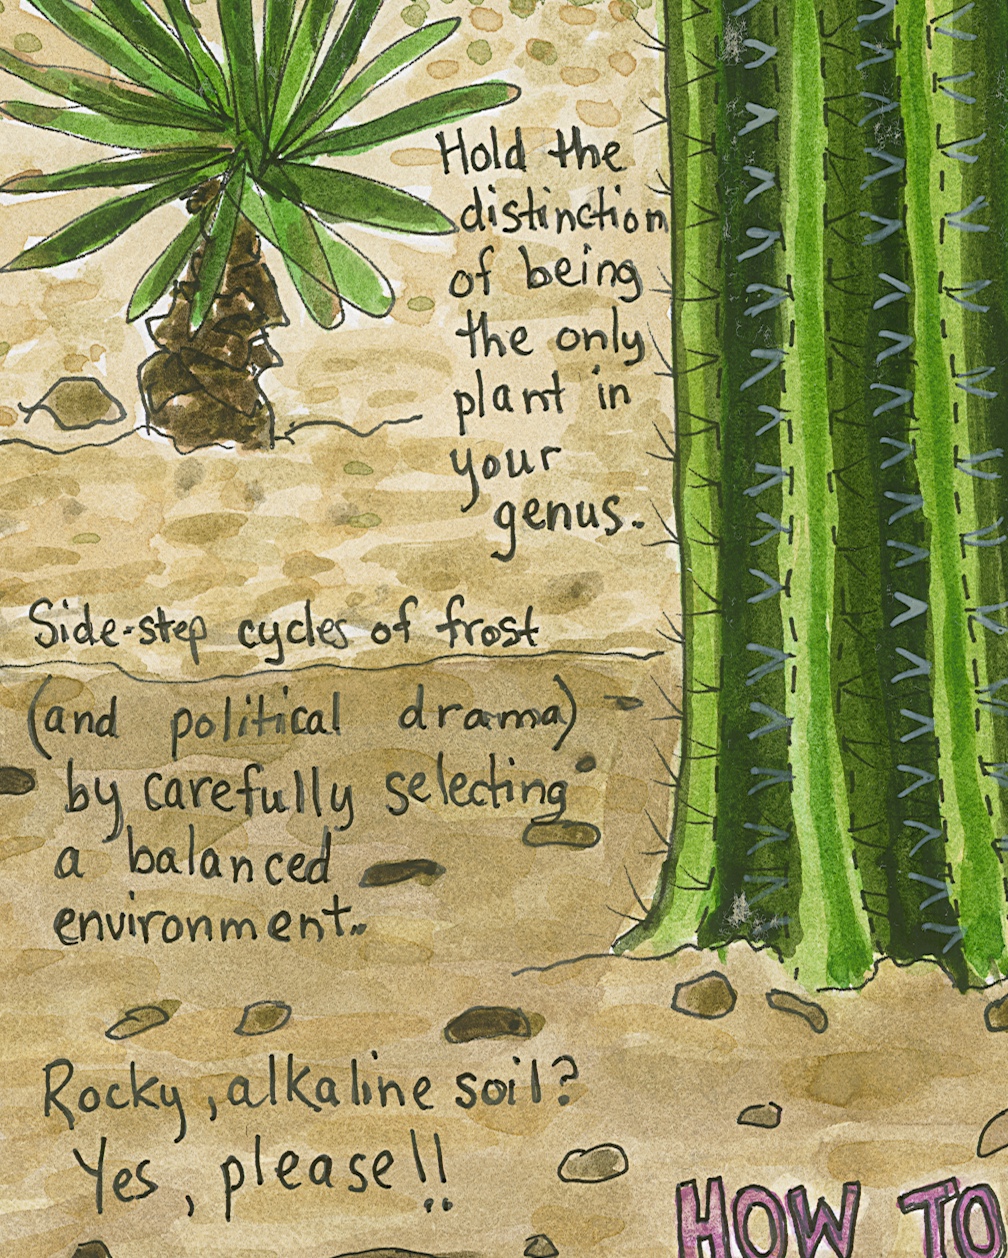 Hold the
distinction
of being
the only
plant in
your
genus.
Side-step cycles of frost
(and political drama)
by carefully selecting
a balanced
environment..
Rocky, alkaline soil?
Yes, please!!
HOW TO